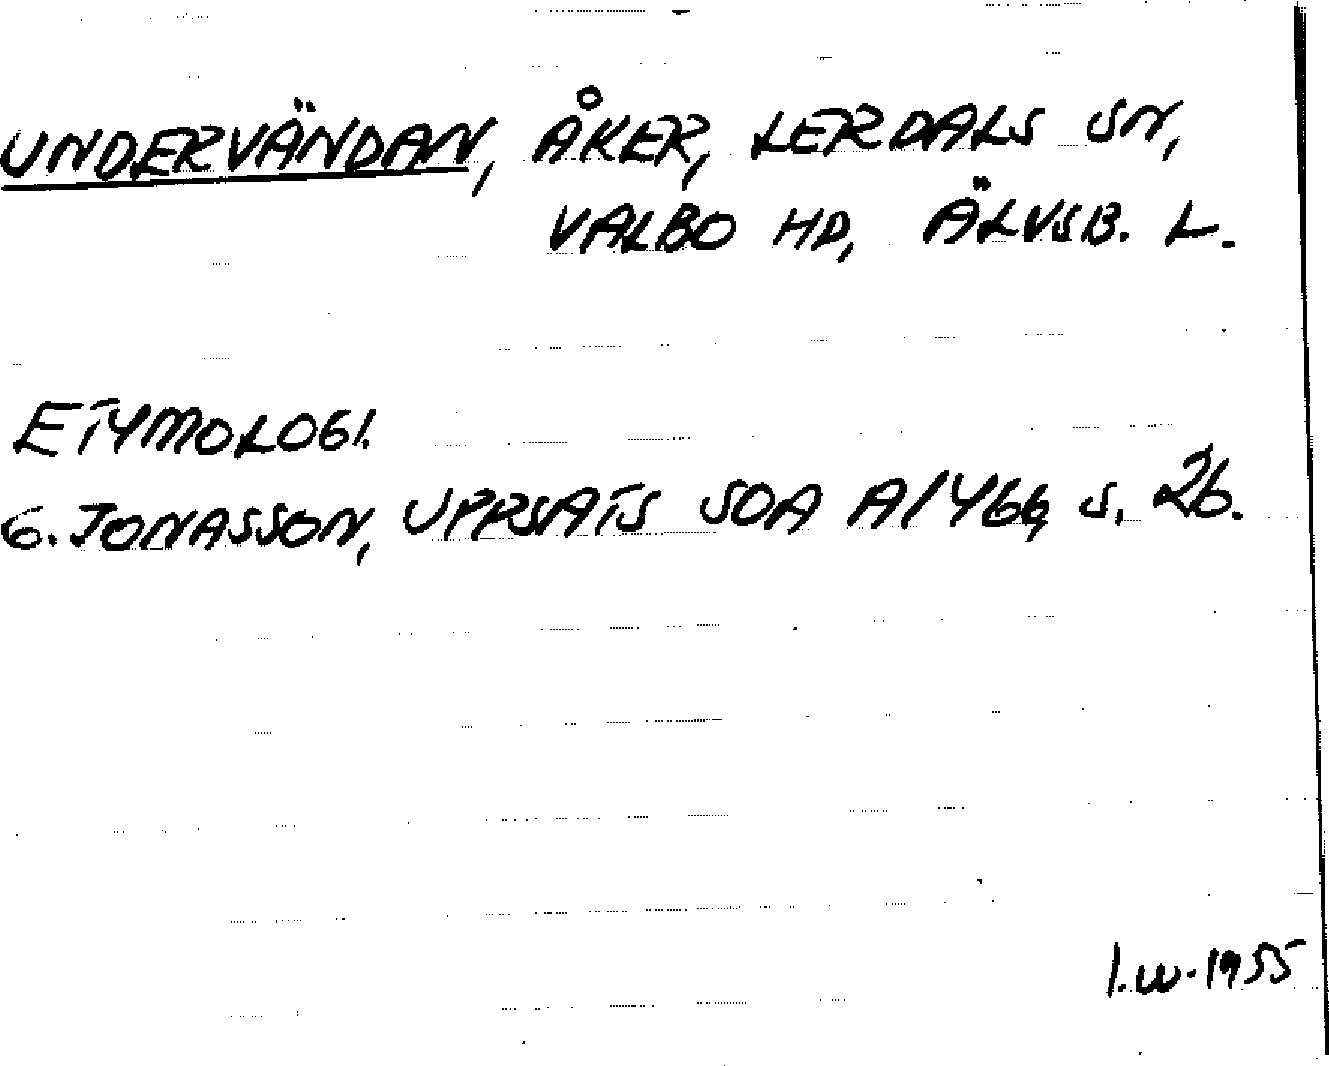 UNDERVÄNDAN, ÅKER, LERDALS SN,
VALBO HD, ÄLVSB. L.
ETYMOLOGI.
G. JONASSON, UPPSATS SOA A/466, S. 26.
I.W. 1955